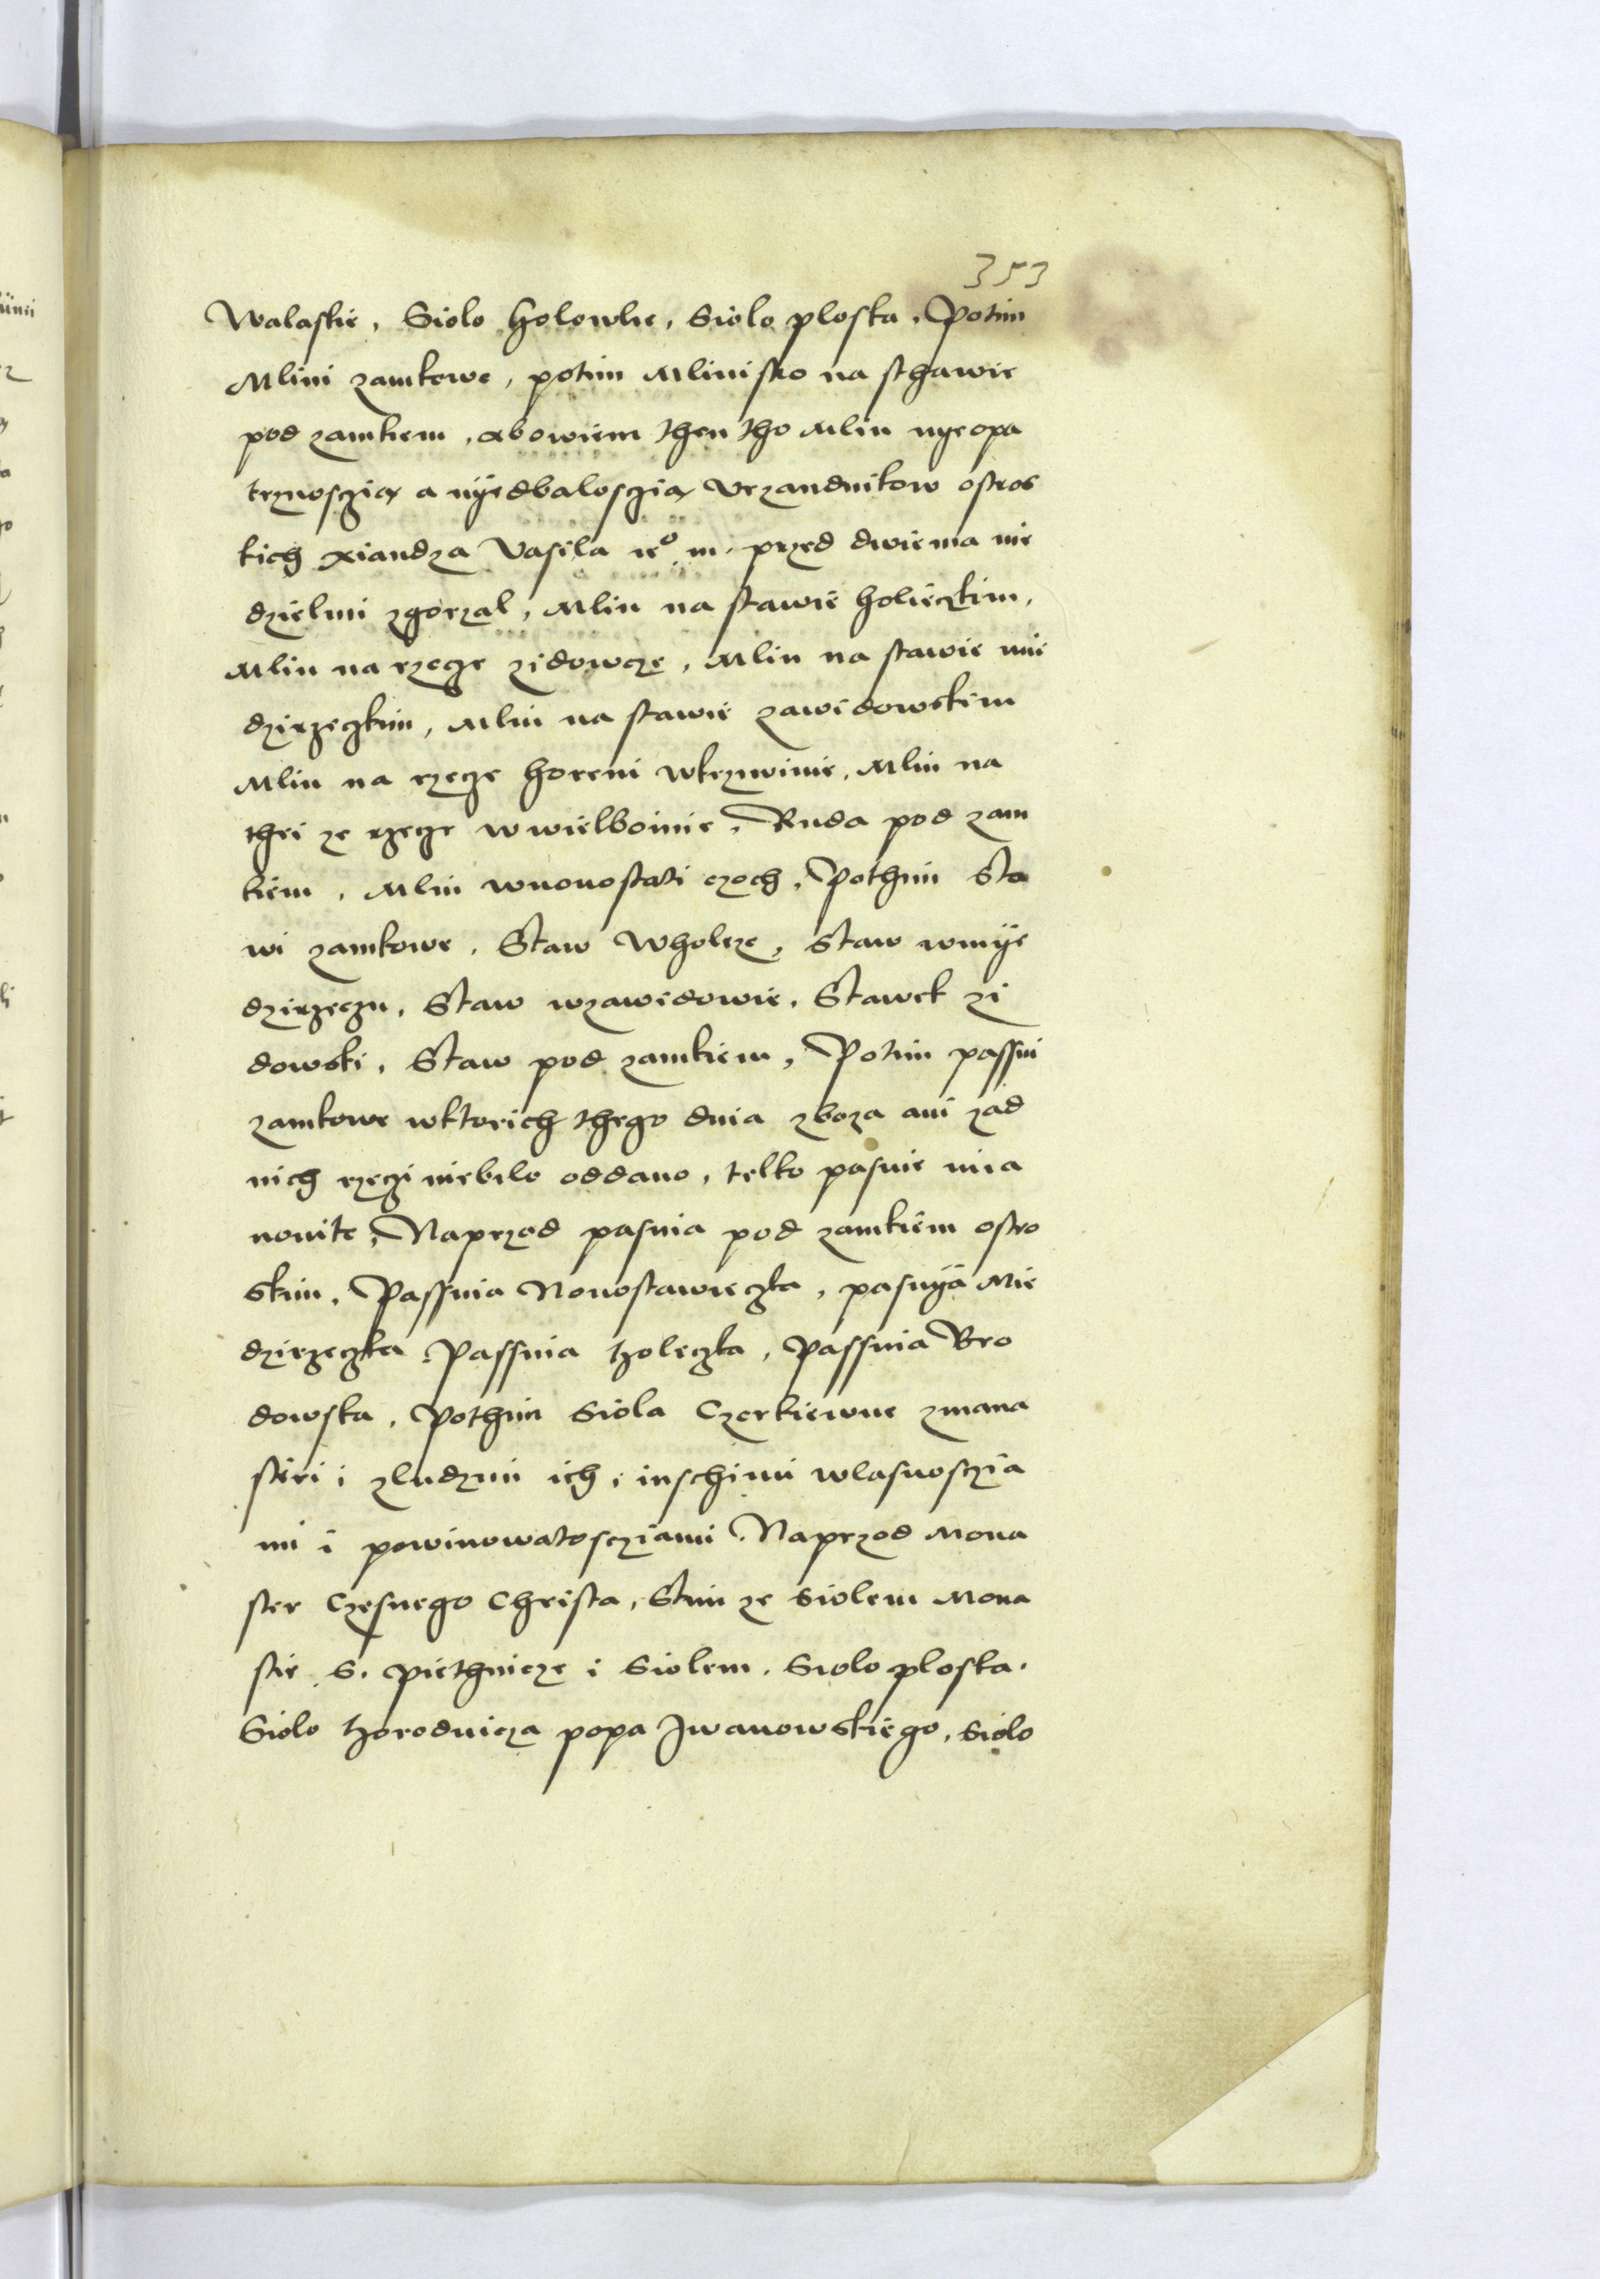 353
Walaskie, Siolo Holowlie, Siolo ploska, Potim
Mlini zamkowe, potim Mlinisko na sthawie
pod zamkiem, abowiem then tho Mlin nyeopa
trznosczią a nyedbalosczią Vrzandnikow ostros
kich xiandza Vasila ieo m. przed dwiema nie
dzielmi zgorzal, Mlin na stawie holieczkim,
Mlin na rzecze zidowcze, Mlin na stawie mie
dzirzeczkim, Mlin na stawie zawidowskim
Mlin na rzecze horeni wkrzwinie, Mlin na
thei ze rzecze wwielboinie, Ruda pod zam
kiem, Mlin wnonostati czoch, Pothim Sta
wi zamkowe, Staw Wholcze, Staw wmye
dzirzeczu, Staw wzawidowie, Stawek zi
dowski, Staw pod zamkiem, Potim passni
zamkowe wktorich thego dnia zboza ani zad
nich rzeczi niebilo oddano, telko pasnie mia
novite, Naprzod pasnia pod zamkiem ostro
skim, Passnia Nonostawieczka, pasnya Mie
dzirzeczka Passnia holeczka, Passnia Bro
dowska, Pothim Siola Czerkiewne zmana
stiri i zludzmi ich, inschimi wlasnoszia
mi i powinowatoscziami Naprzod Mona
ster Czesnego Christa, Stim ze siolem Mona
stie S. piethnicze i Siolem. Siolo ploska.
Siolo horodnicza popa Iwanowskiego, Siolo